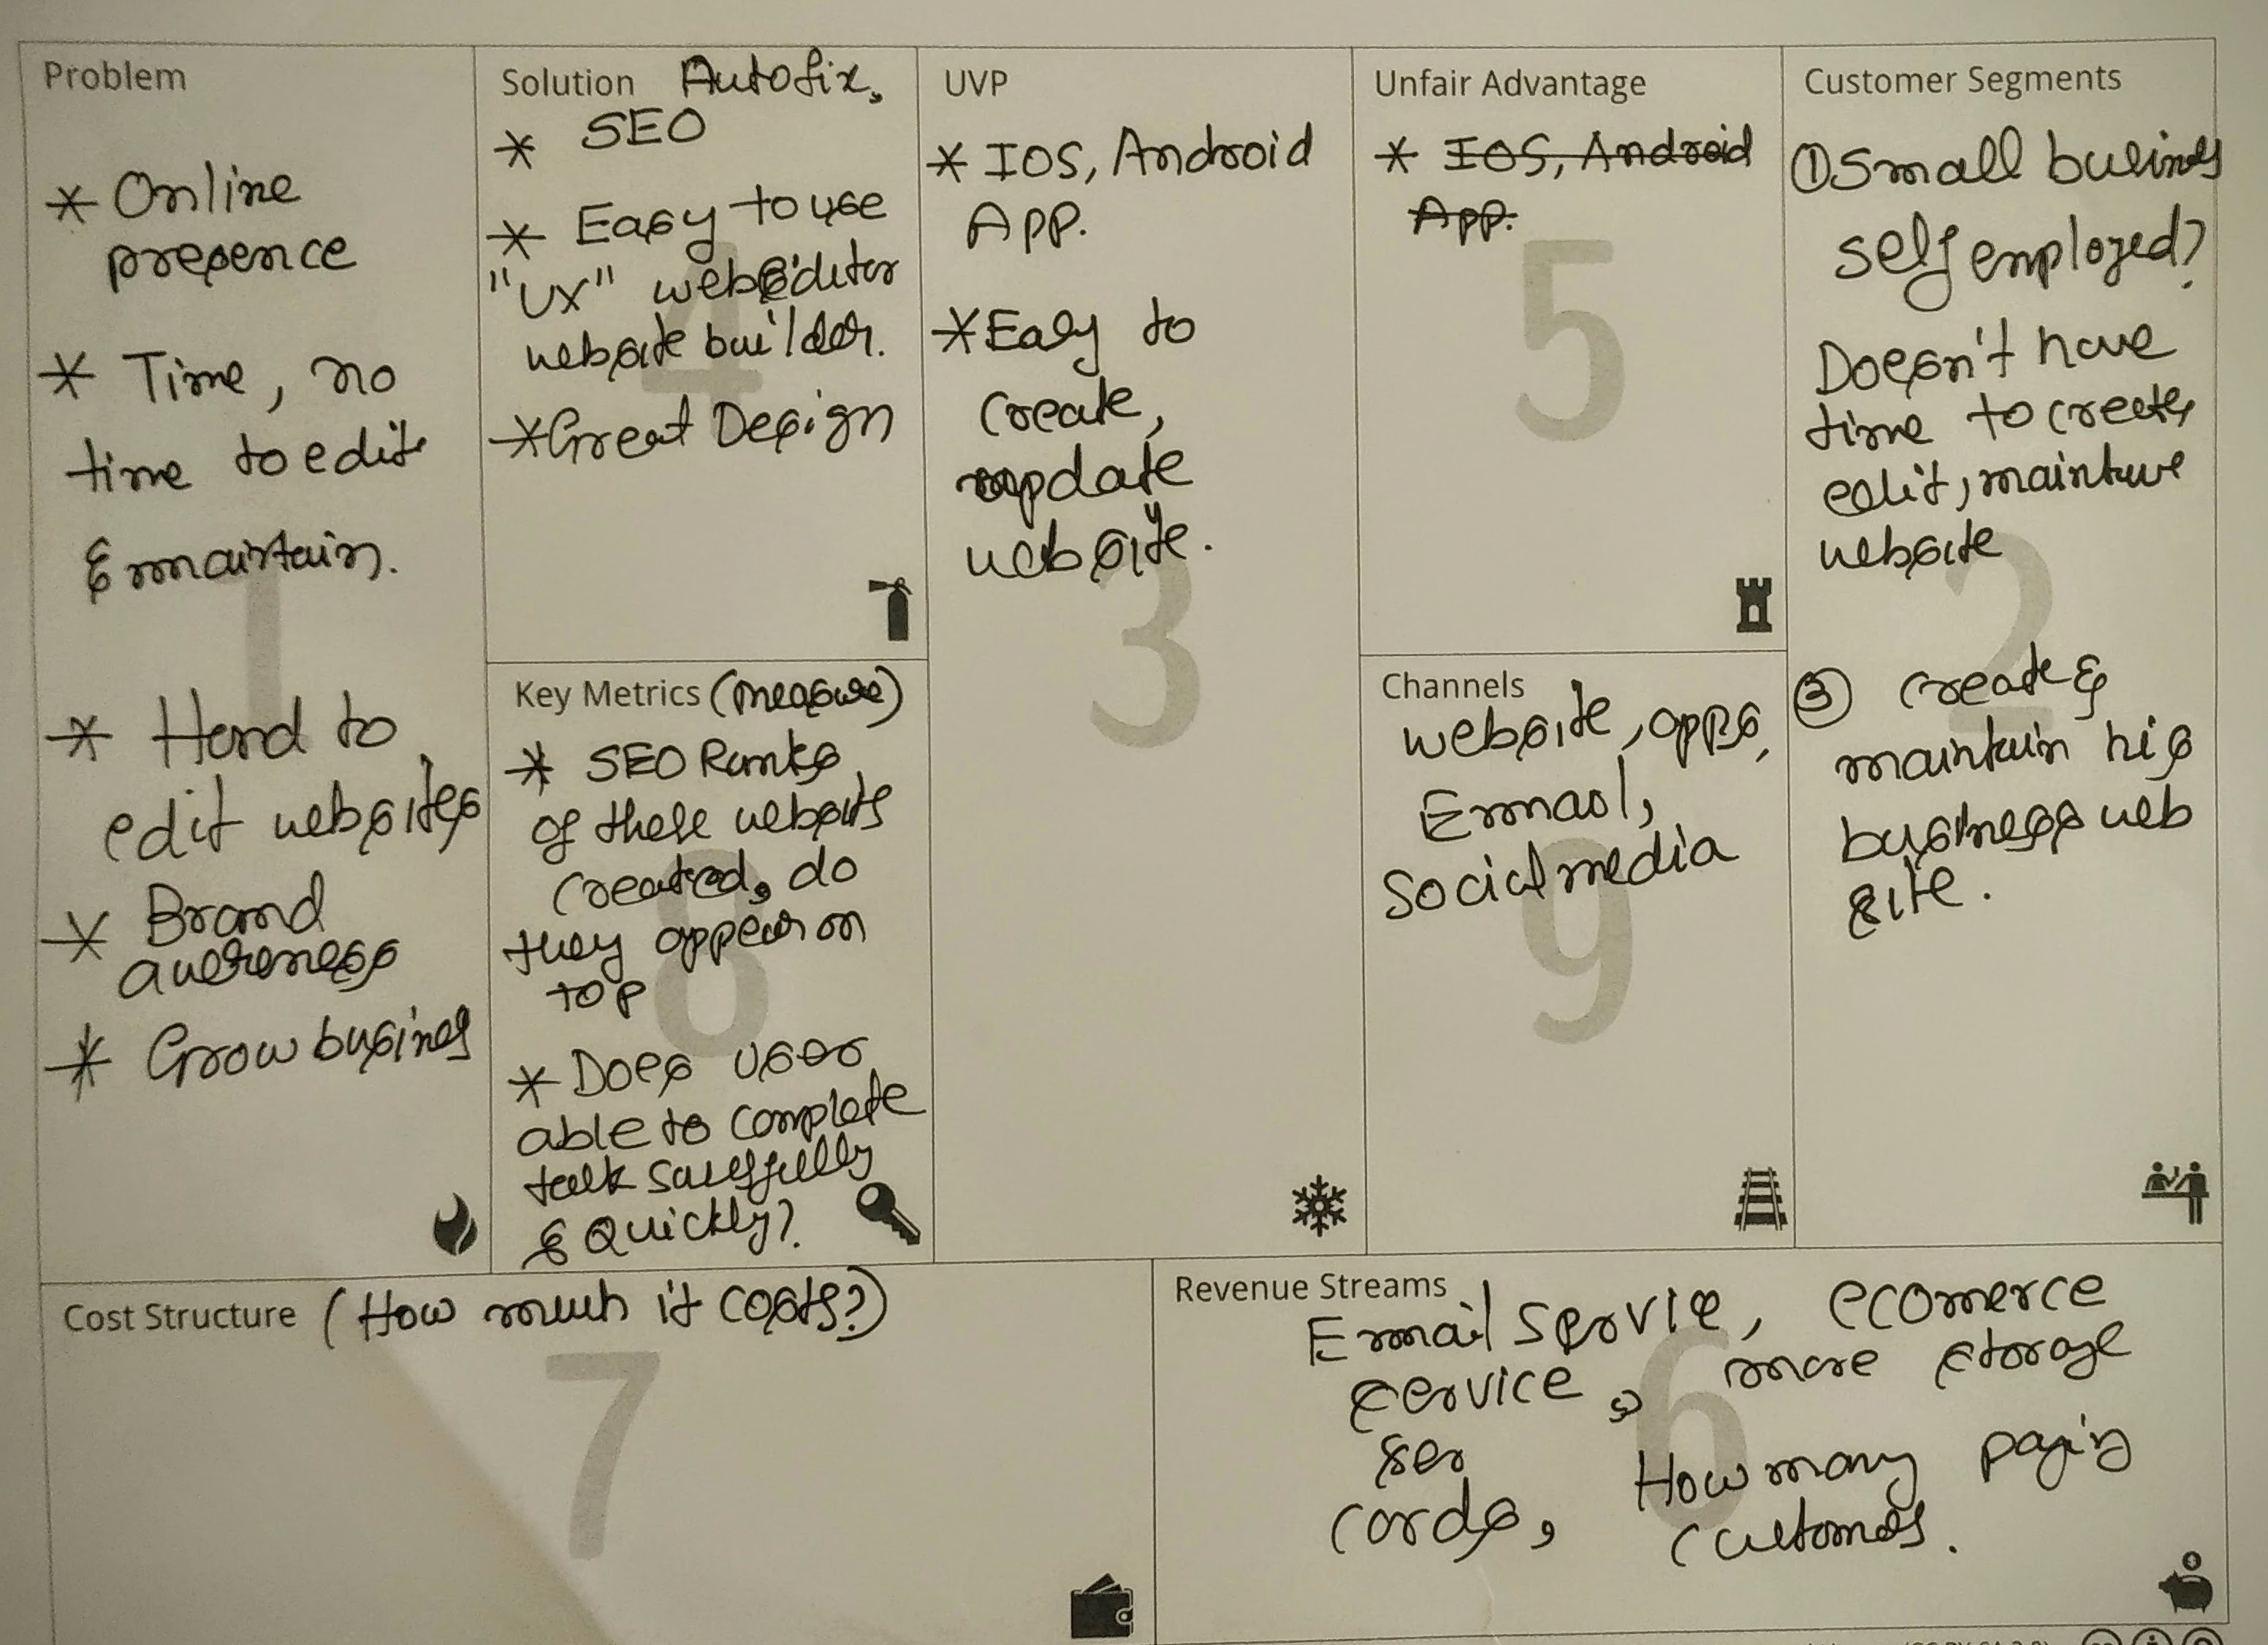 Problem
* Online
presence
* Time, no
time to edit
& maintain.
1
* Hard to
edit websites
* Brand
awareness
* Grow business
Solution Autofix,
* SEO
* Easy to use
"UX" web editor
website builder.
4
* Great Design
Key Metrics (measure)
* SEO Ranks
of these websites
created, do
they appear on
top
8
* Does user
able to complete
task
& Quickly?
UVP
* IOS, Android
App.
* Easy to
create,
update
website.
3
Unfair Advantage
* IOS, Android
App.
5
Channels
website, apps,
Email,
Social media
9
Customer Segments
① Small business
self employed?
Doesn't have
time to create,
edit,
website
2
③ create &
maintain his
business web
site.
Cost Structure (How much it costs?)
7
Revenue Streams
Email servie, ecomerce
service, more storage
6
cards, How many paying
customers.